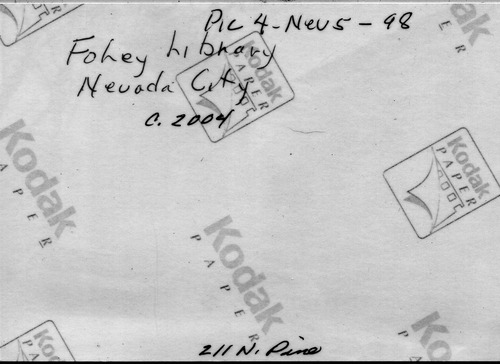 Pic 4-Nev5-98
Foley Library
Nevada City
c. 2004
211 N. Pine
Kodak
PAPER
Kodak
PAPER
Kodak
PAPER
Kodak
PAPER
Kodak
PAPER
Kodak
Kodak